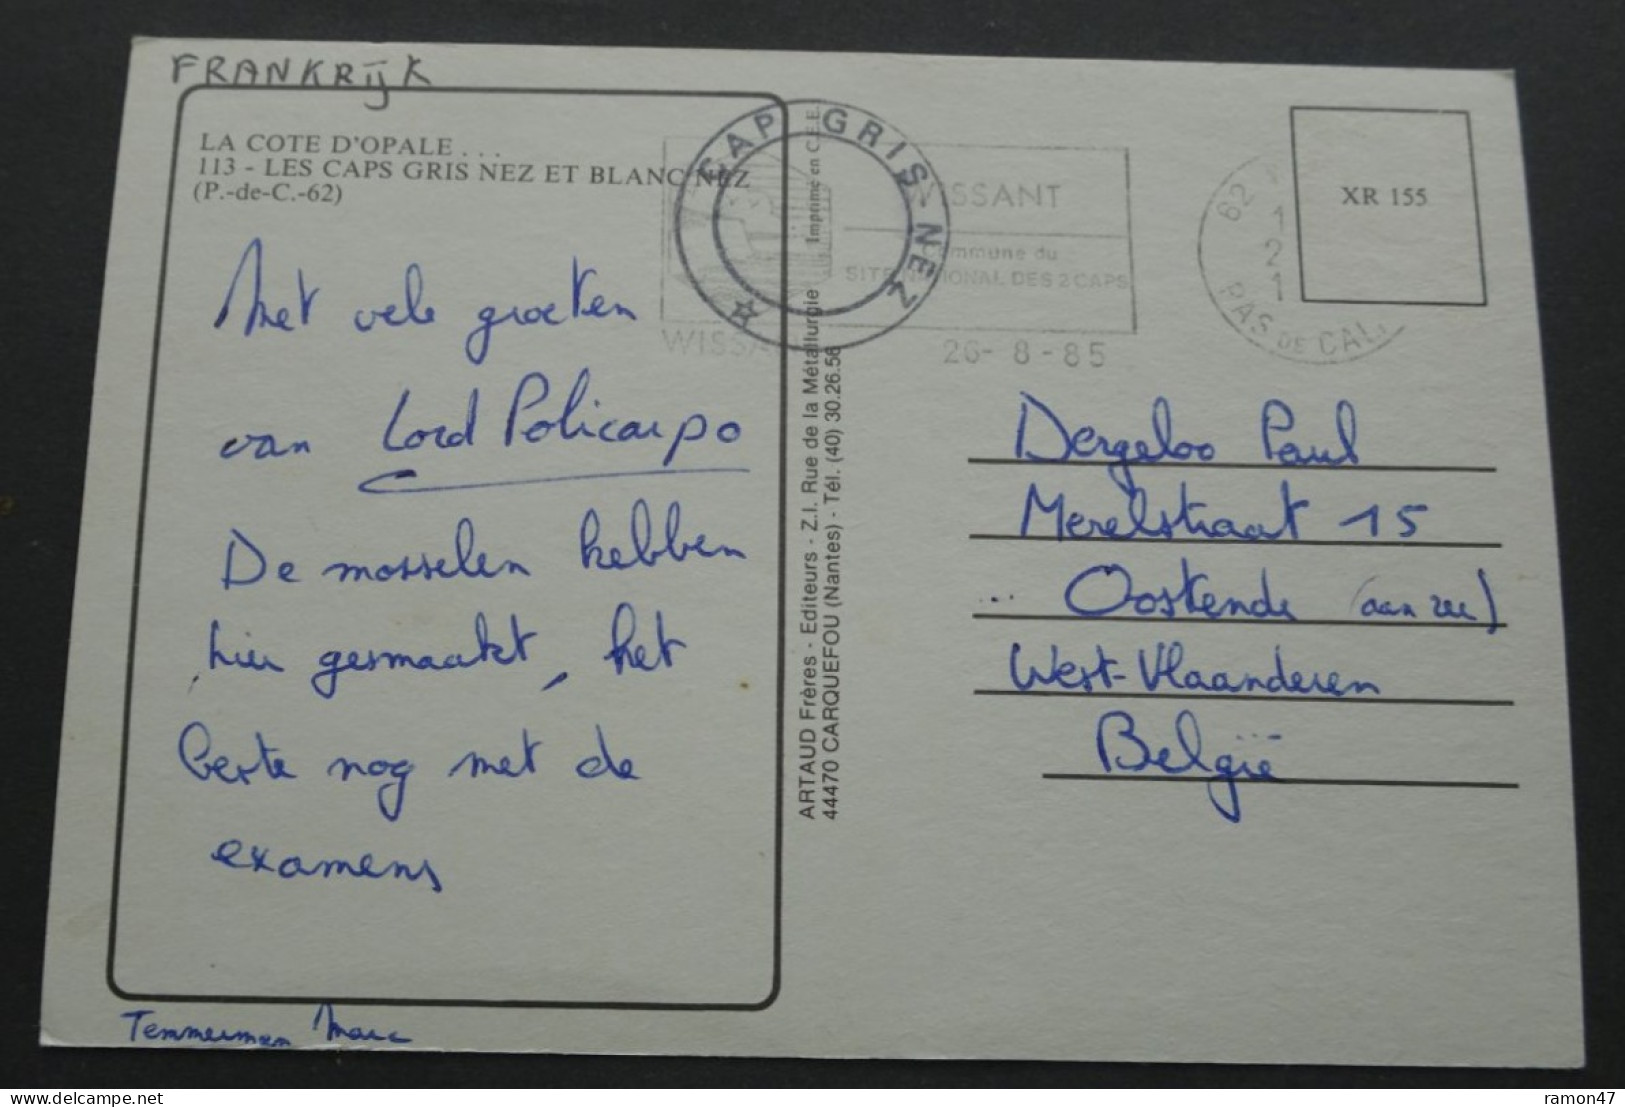 FRANKRIJK
LA COTE D'OPALE...
113 - LES CAPS GRIS NEZ ET BLANC NEZ
(P.-de-C.-62)
Met vele groeten
van Lord Policarpo
De mosselen hebben
hier gesmaakt, het
beste nog met de
examens
Temmerman Marc
CAP GRIS NEZ
WISSANT
Commune du
SITE NATIONAL DES 2 CAPS
26-8-85
62
PAS DE CAL
Imprimé en C.E.E.
ARTAUD Frères - Editeurs - Z.I. Rue de la Métallurgie
44470 CARQUEFOU (Nantes) - Tél. (40) 30.26.56
XR 155
Dergeloo Paul
Merelstraat 15
Oostende (aan zee)
West-Vlaanderen
België
ramon47